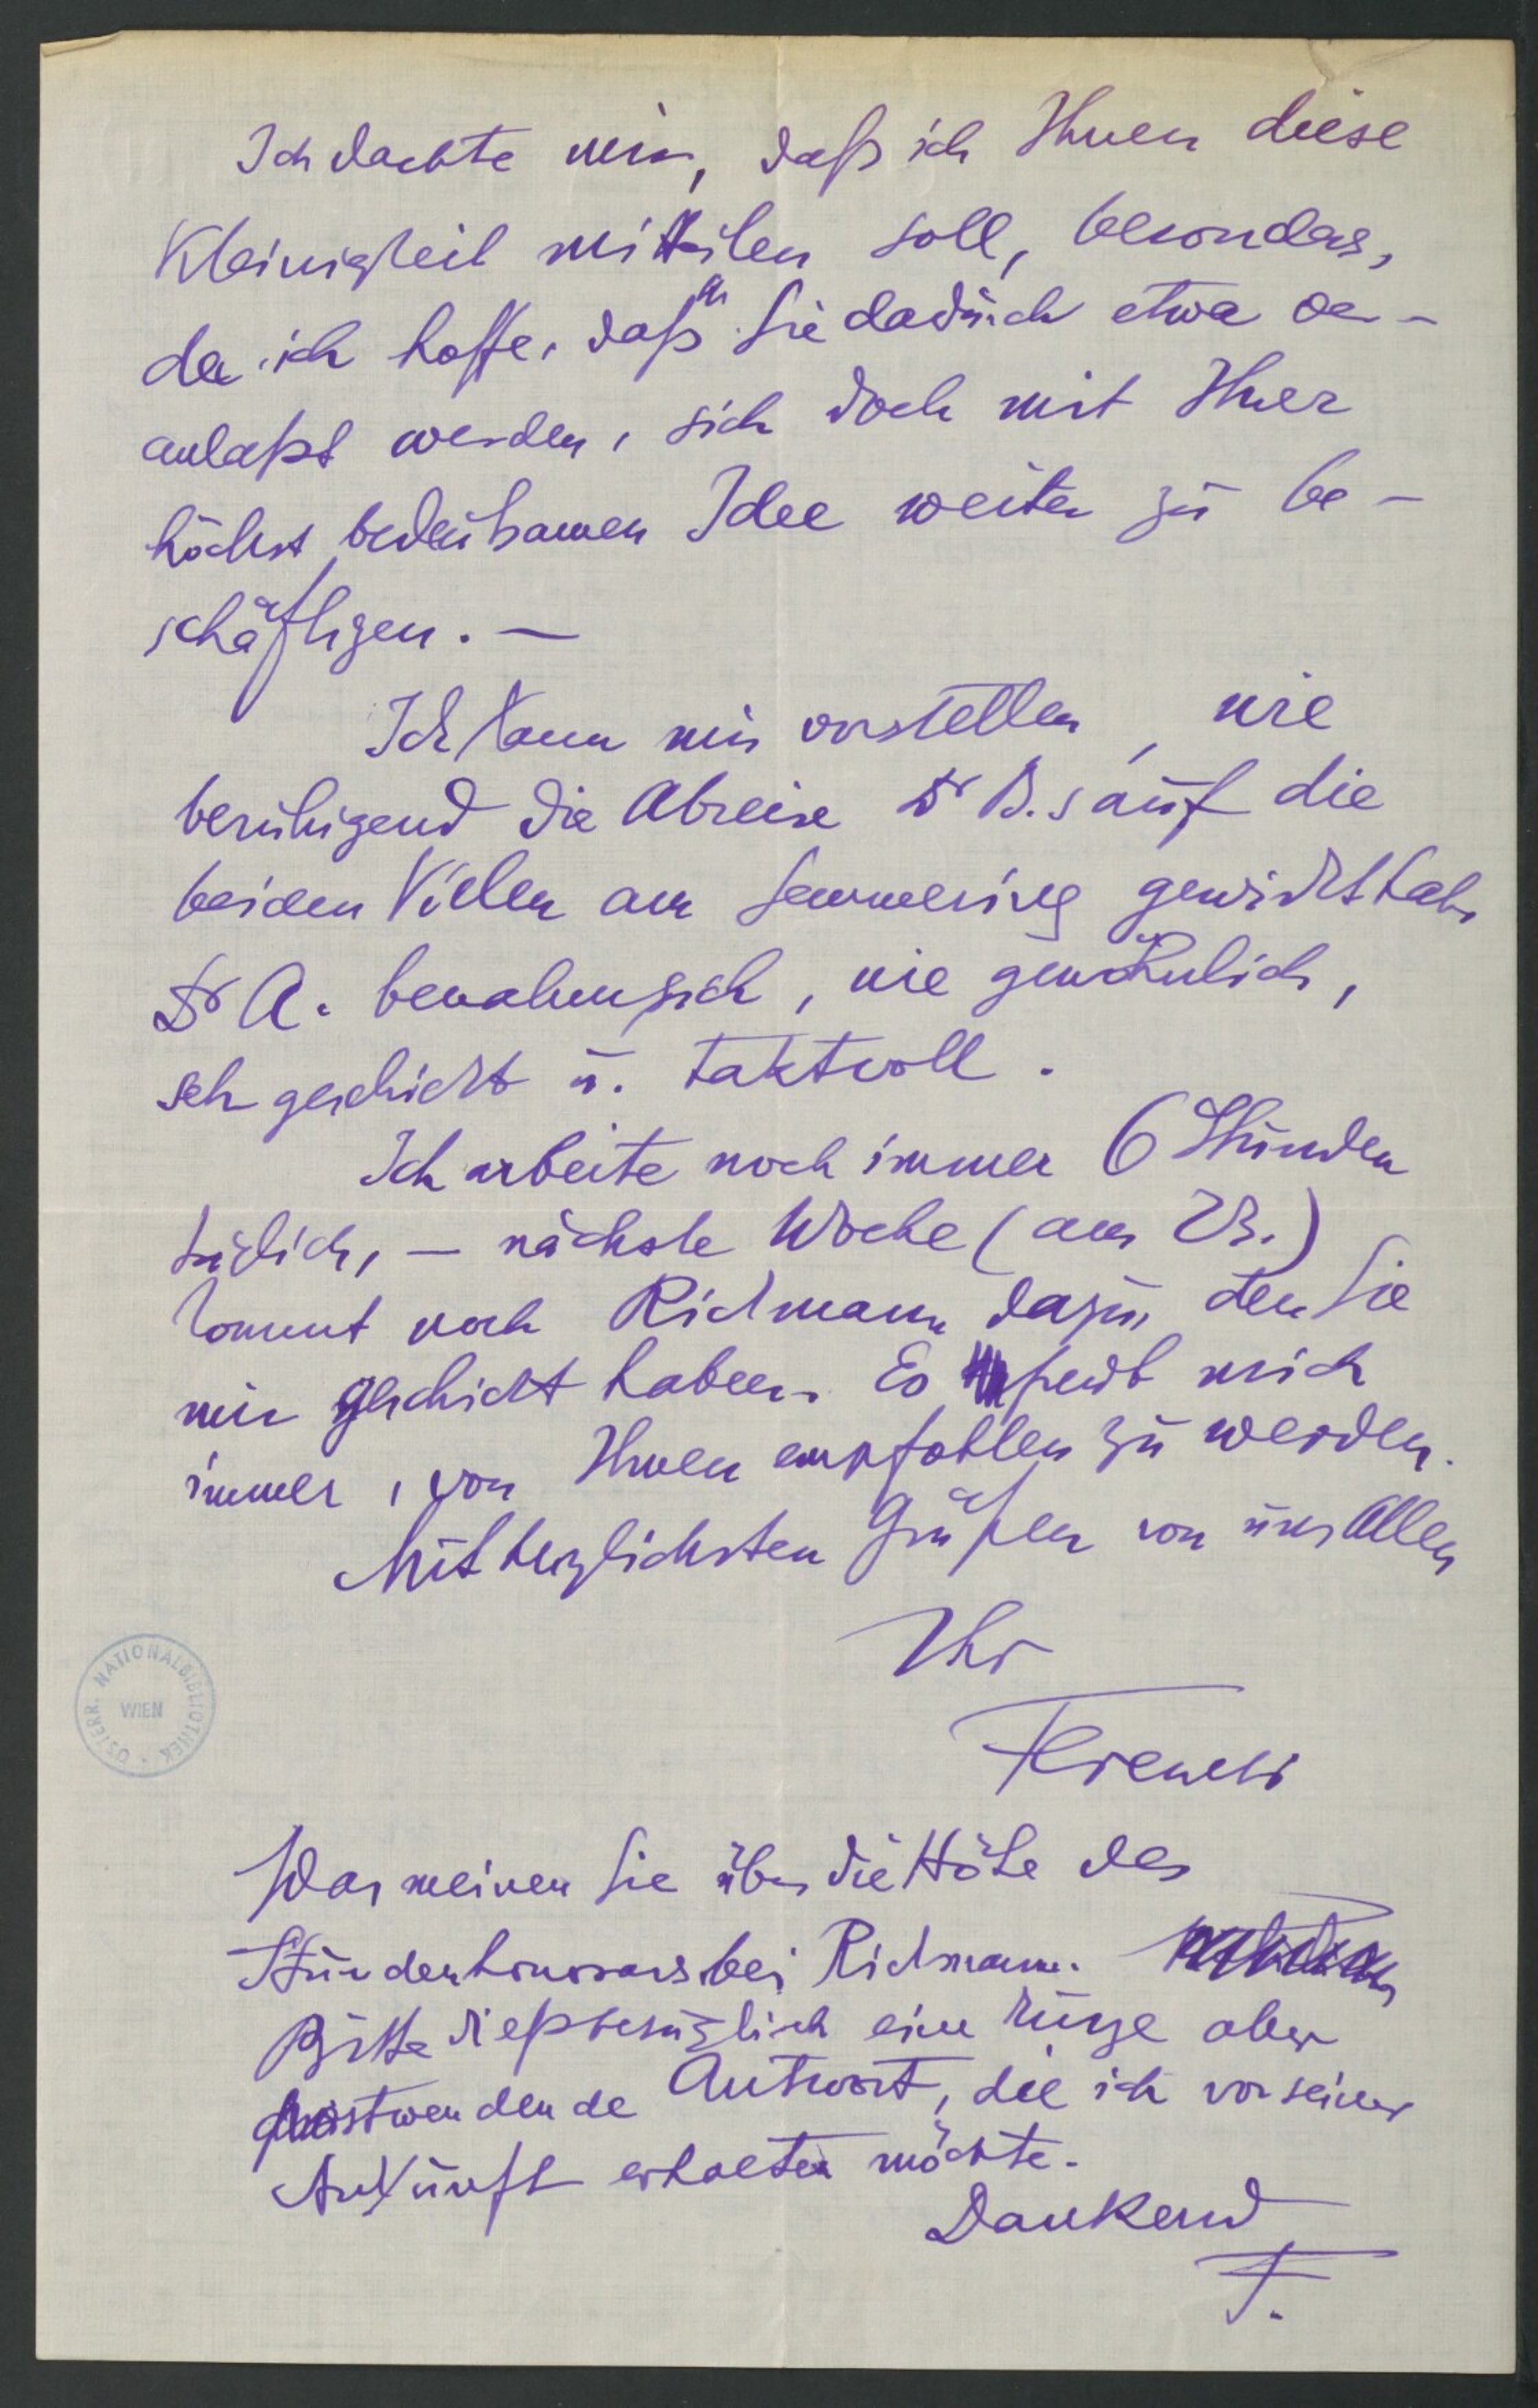 Ich dachte mir, daß ich Ihnen diese
Kleinigkeit mitteilen soll, besonders,
da ich hoffe, daß Sie dadurch etwa ver-
anlaßt werden, sich doch mit Ihrer
höchst bedeutsamen Idee weiter zu be-
schäftigen. —
Ich kann mir vorstellen, wie
beruhigend die Abreise Dr B.s auf die
beiden Villen am Semmering gewirkt habe
Dr A. benahm sich, wie gewöhnlich,
sehr geschickt u. taktvoll.
Ich arbeite noch immer 6 Stunden
täglich, — nächste Woche (am 23.)
kommt noch Rickmann dazu, den Sie
mir geschickt haben. Es freut mich
immer, von Ihnen empfohlen zu werden.
Mit herzlichsten Grüßen von uns Allen
Ihr
Ferenczi
ÖSTERR. NATIONALBIBLIOTHEK
WIEN
Was meinen Sie über die Höhe des
Stundenhonorars bei Rickmann.
Bitte dießbezüglich eine kurze aber
postwendende Antwort, die ich vor seiner
Ankunft erhalten möchte.
Dankend
F.